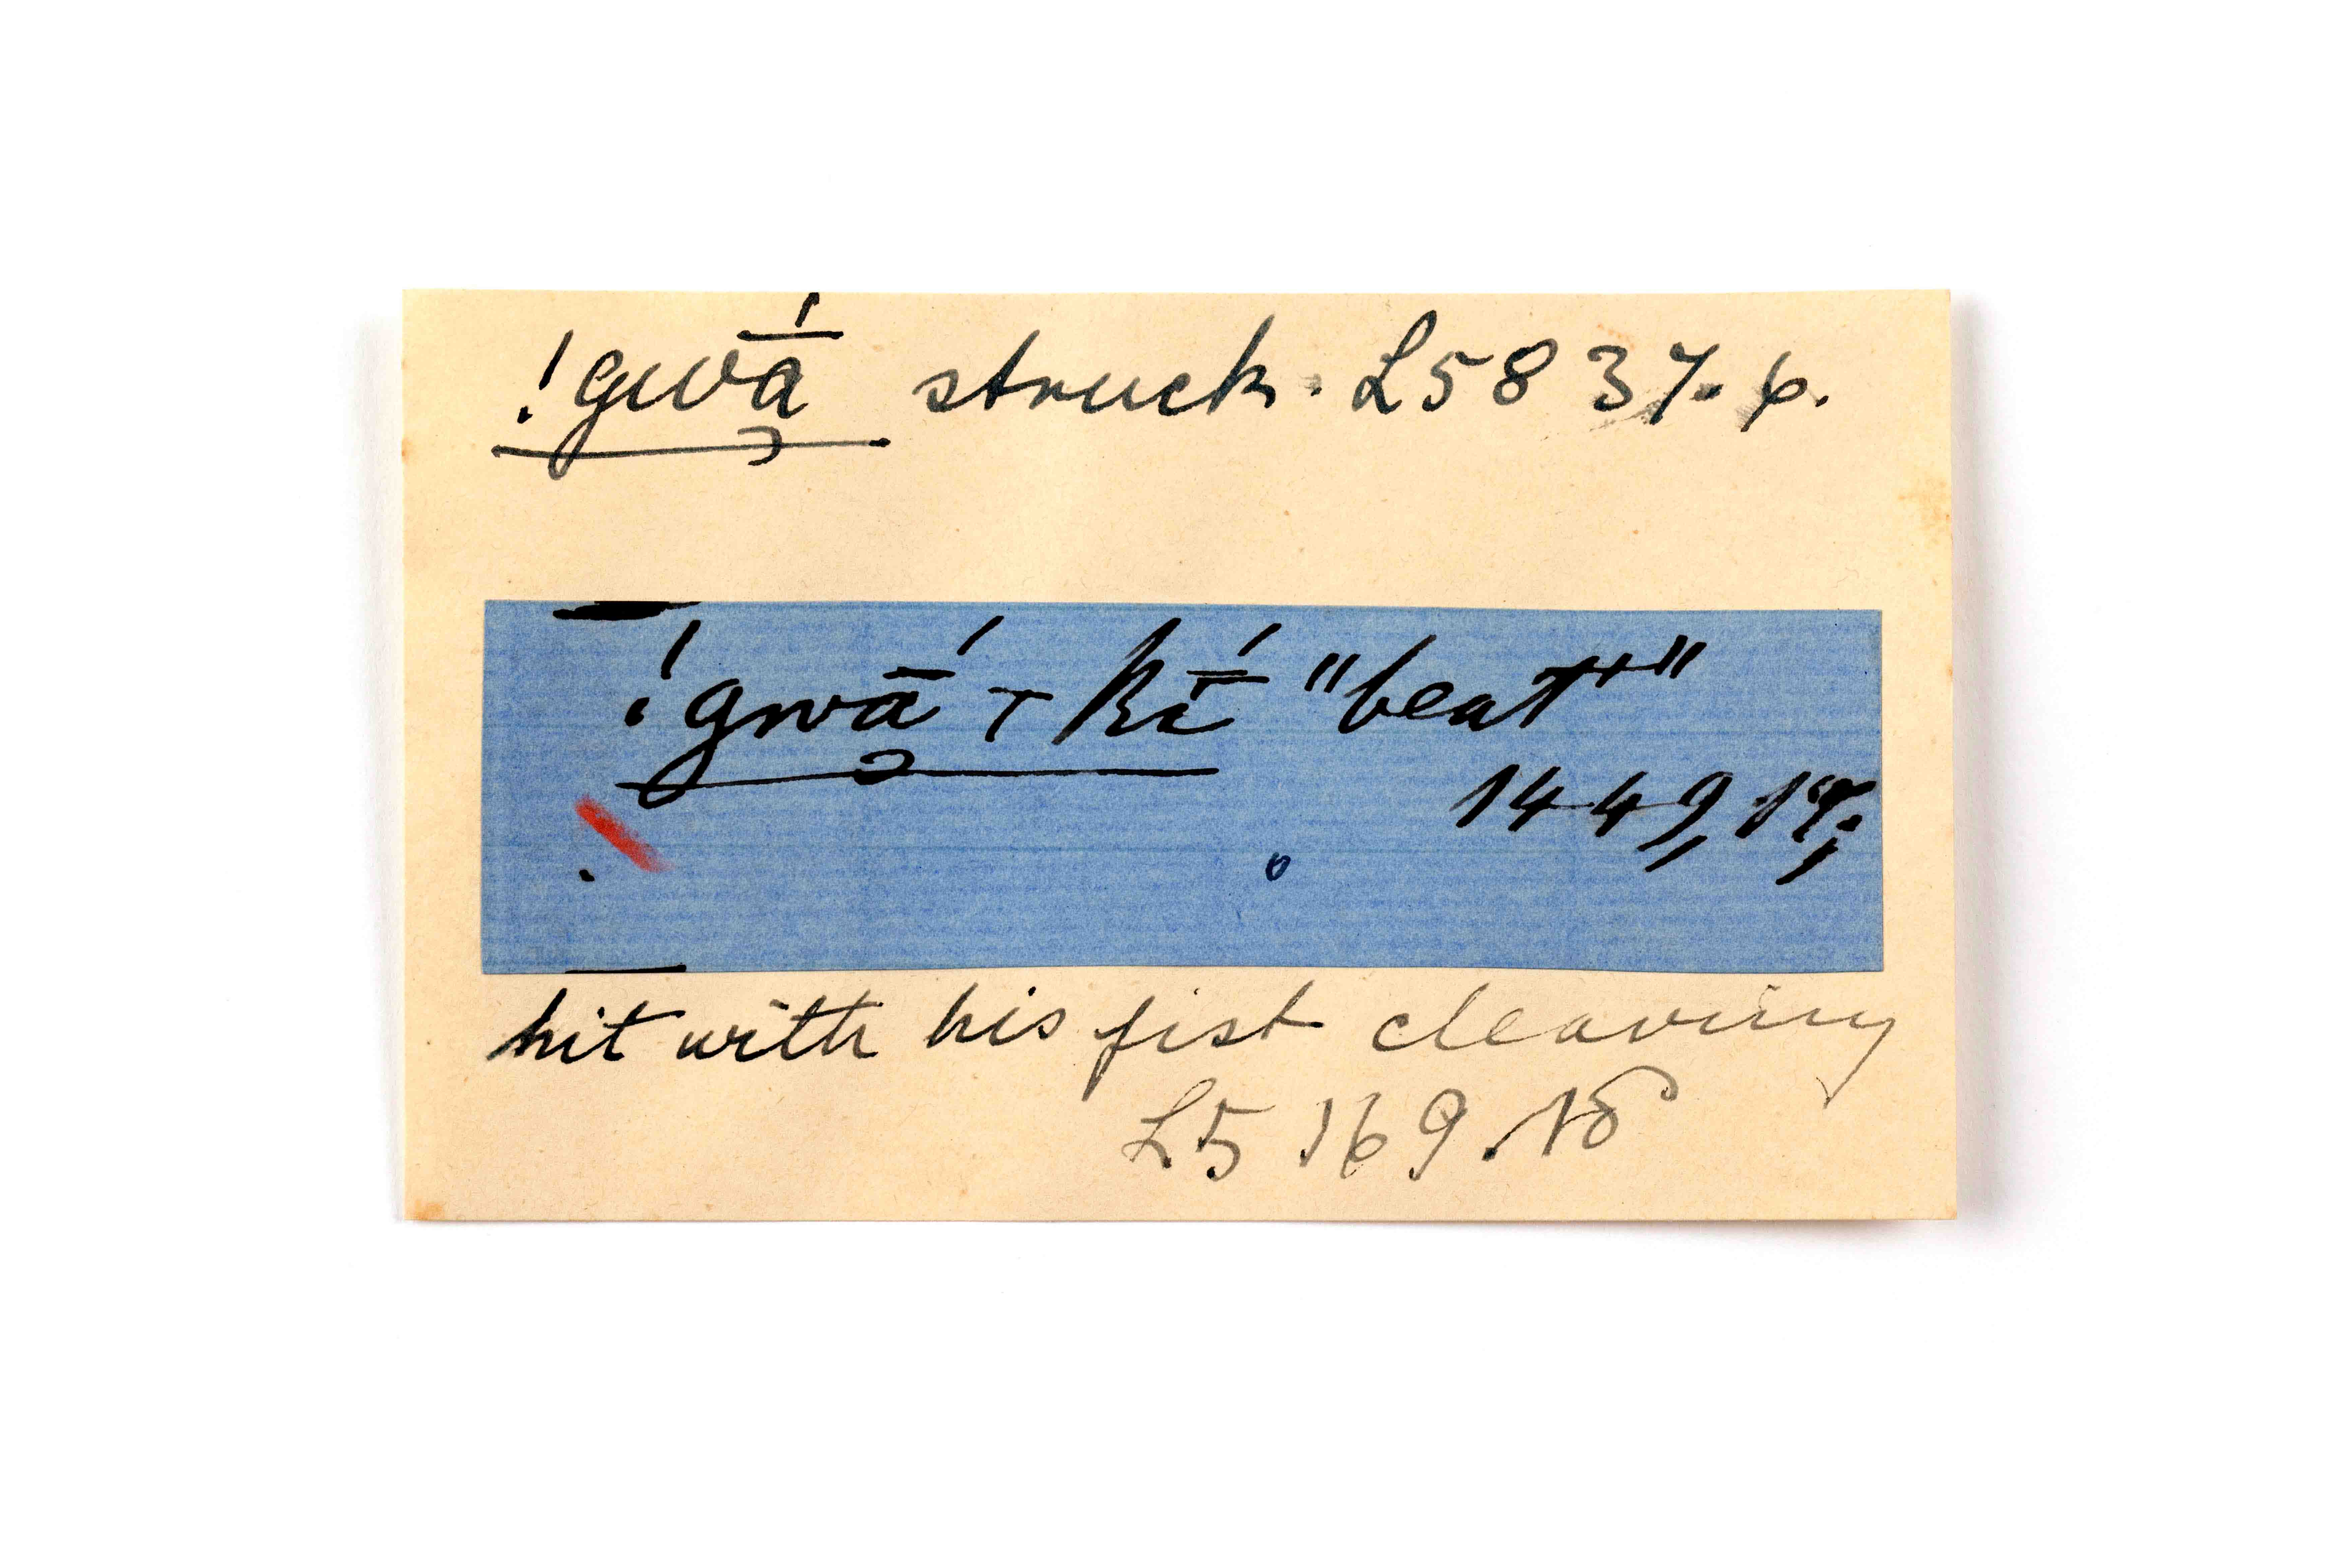 !gwā́ struck. L5837.6.
!gwā́ ⊤ kī́ "beat"
1449,
hit with his fist cleaving
L5 169.18